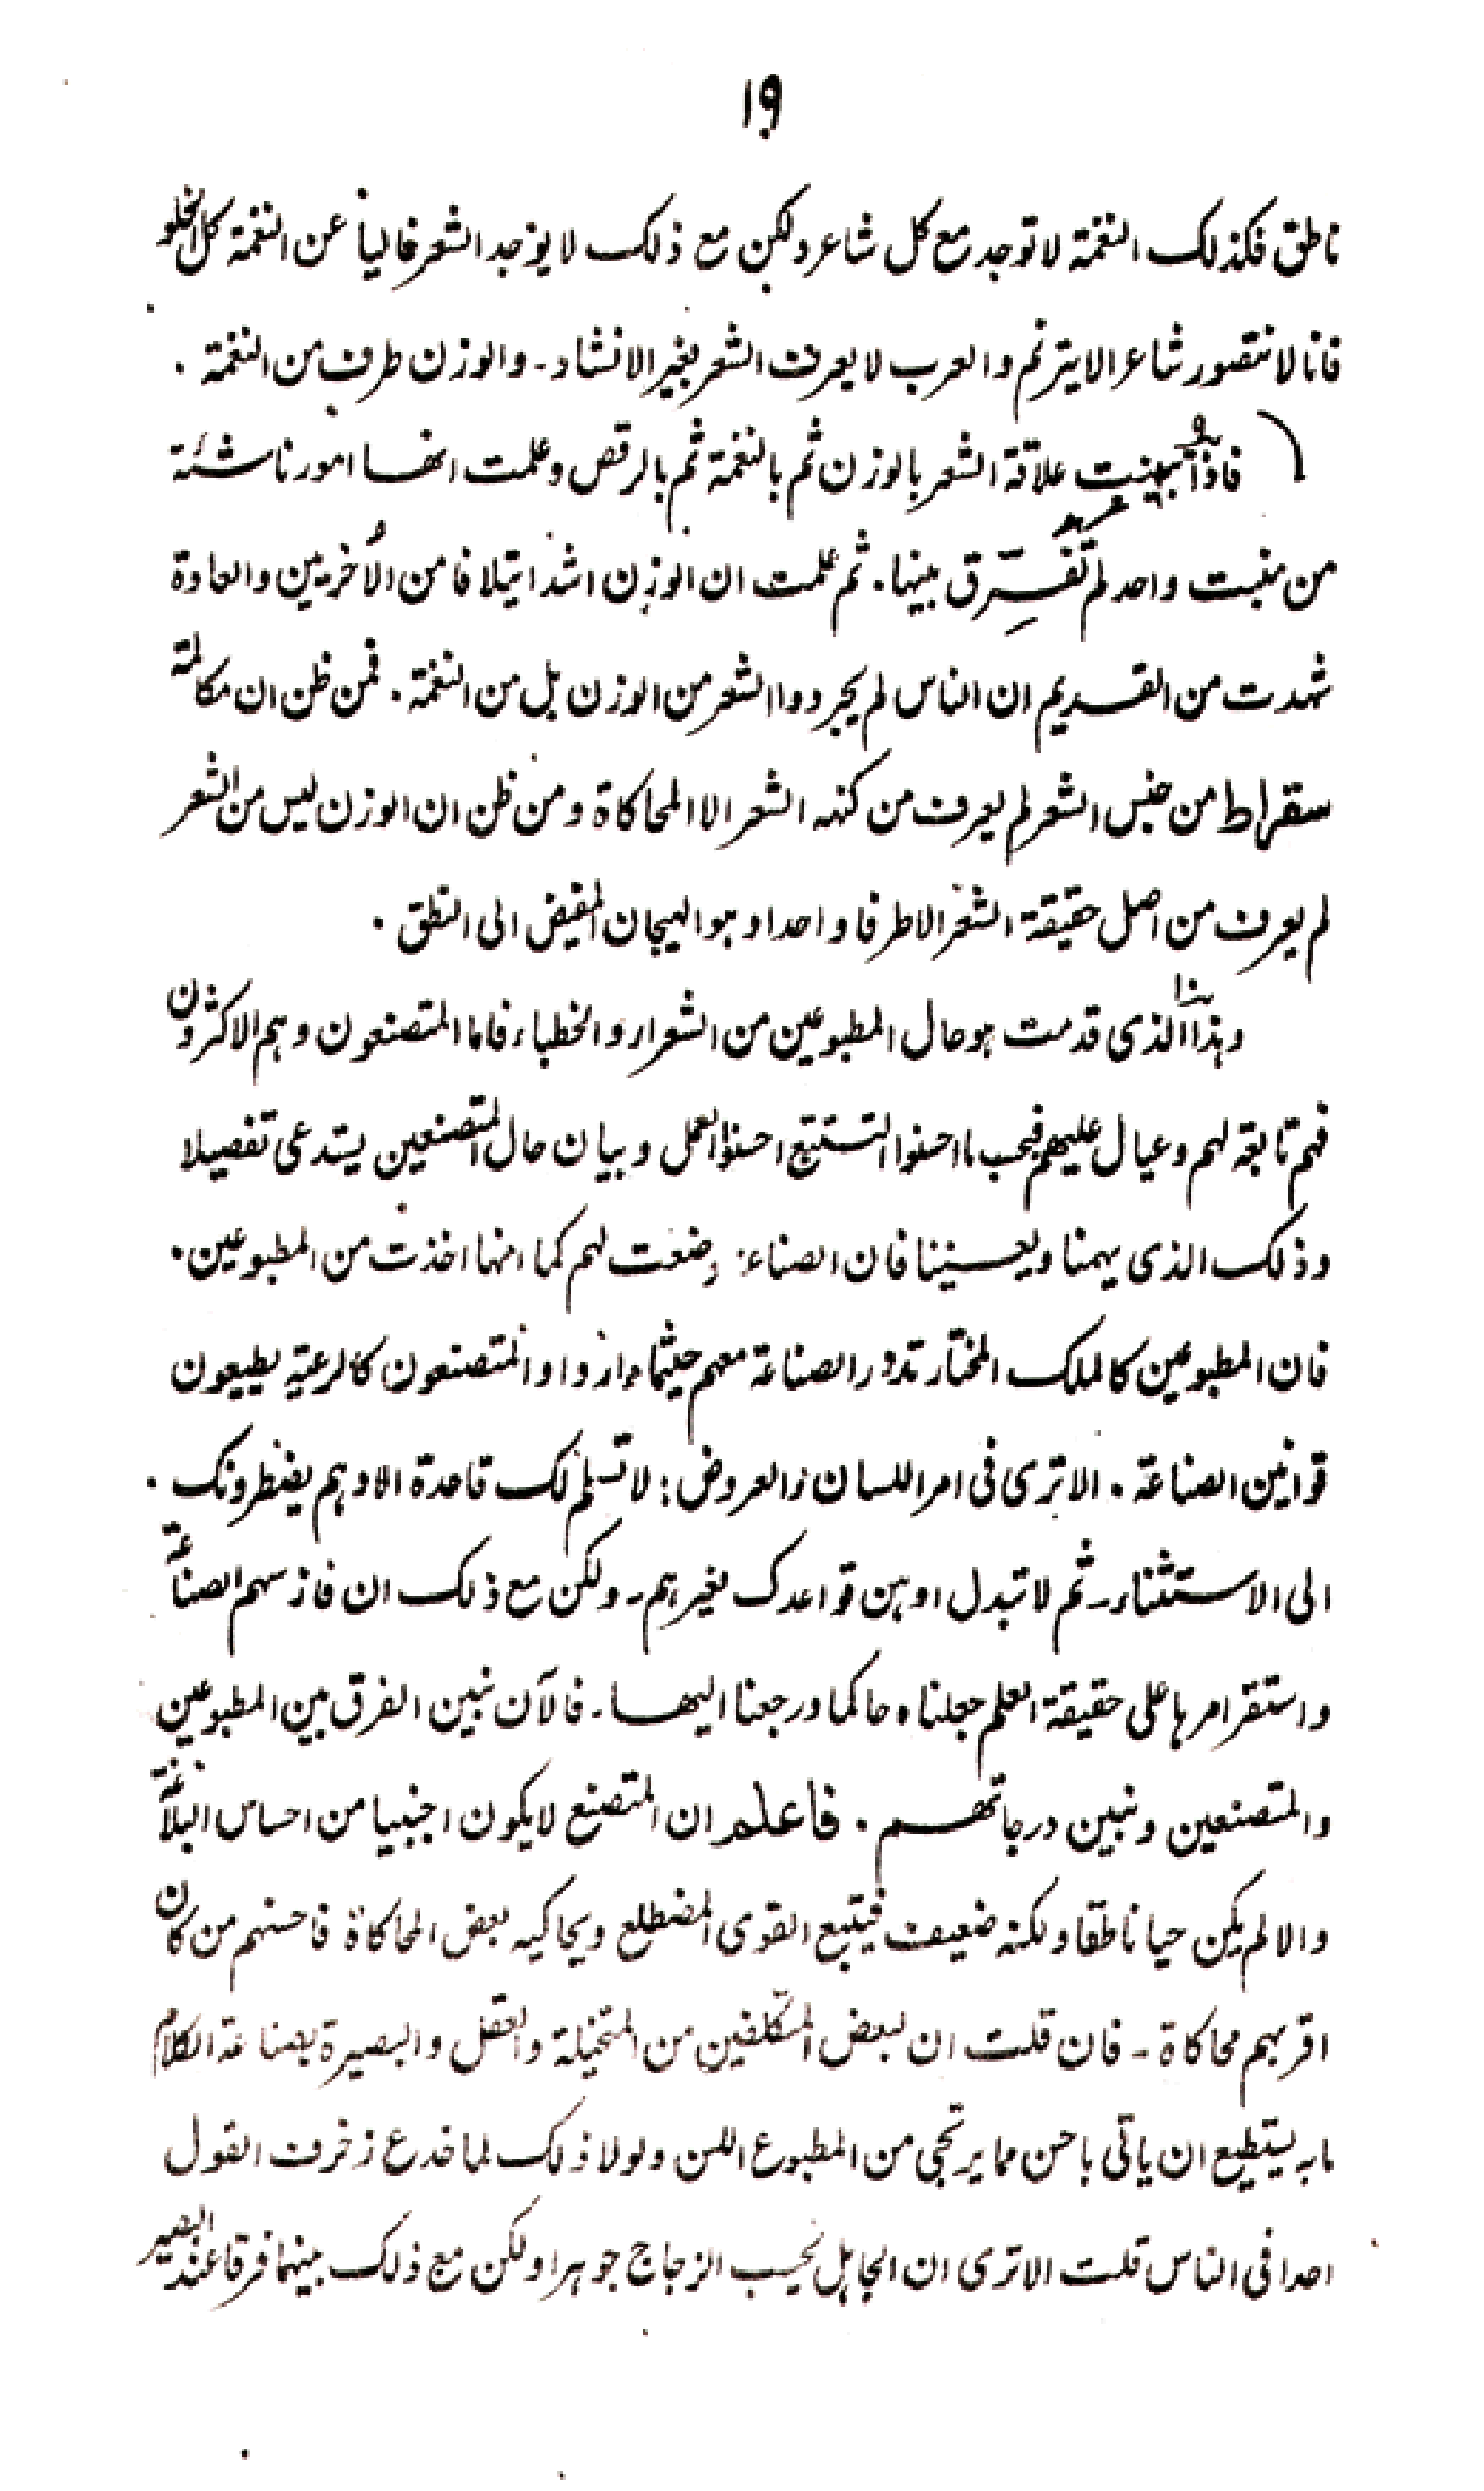 ١٩
ناطق فكذلك النغمة لا توجد مع كل شاعر ولكن مع ذلك لا يوجد الشعر خالياً عن النغمة كل الخلو
فانا لا نتصور شاعر الا يترنم والعرب لا يعرف الشعر بغير الانشاد - والوزن طرف من النغمة .
فاذا تبينت علاقة الشعر بالوزن ثم بالنغمة ثم بالرقص وعلمت انها امور ناشئة
من منبت واحد لم تفرِّق بينها . ثم علمت ان الوزن اشد ايتلافا من الأخريين والعادة
شهدت من القديم ان الناس لم يجردوا الشعر من الوزن بل من النغمة . فمن ظن ان مكالمة
سقراط من جنس الشعر لم يعرف من كنه الشعر الا المحاكاة ومن ظن ان الوزن ليس من الشعر
لم يعرف من اصل حقيقة الشعر الا طرفا واحدا وهو الهيجان المفيض الى النطق .
وهذا الذى قدمت هو حال المطبوعين من الشعراء والخطباء فاما المتصنعون وهم الاكثرون
فهم تابعة لهم وعيال عليهم فبحسب ما احسنوا التتبع احسنوا العمل وبيان حال المتصنعين يستدعى تفصيلا
وذلك الذى يهمنا ويعنينا فان الصناعة وضعت لهم كما انها اخذت من المطبوعين .
فان المطبوعين كالملك المختار تدور الصناعة معهم حيثما داروا والمتصنعون كالرعية يطيعون
قوانين الصناعة . الا ترى فى امر اللسان والعروض : لا تسلم لك قاعدة الا وهم يضطرونك .
الى الاستثناء - ثم لا تبدل اوهن قواعدك بغيرهم - ولكن مع ذلك ان فاز سهم الصناعة
واستقر امرها على حقيقة العلم جعلناه حاكما ورجعنا اليها - فالآن نبين الفرق بين المطبوعين
والمتصنعين ونبين درجاتهم . فاعلم ان المتصنع لا يكون اجنبيا من احساس البلاغة
والا لم يكن حيا ناطقا ولكنه ضعيف فيتبع القوى المضطلع ويحاكيه بعض المحاكاة فاحسنهم من كان
اقربهم محاكاة - فان قلت ان لبعض المتكلفين من المتخيلة والعقل والبصيرة بصناعة الكلام
ما به يستطيع ان ياتى باحسن مما يرتجى من المطبوع اللسن ولولا ذلك لما خدع زخرف القول
احدا فى الناس قلت الا ترى ان الجاهل يحسب الزجاج جوهرا ولكن مع ذلك بينهما فرقا عند البصير